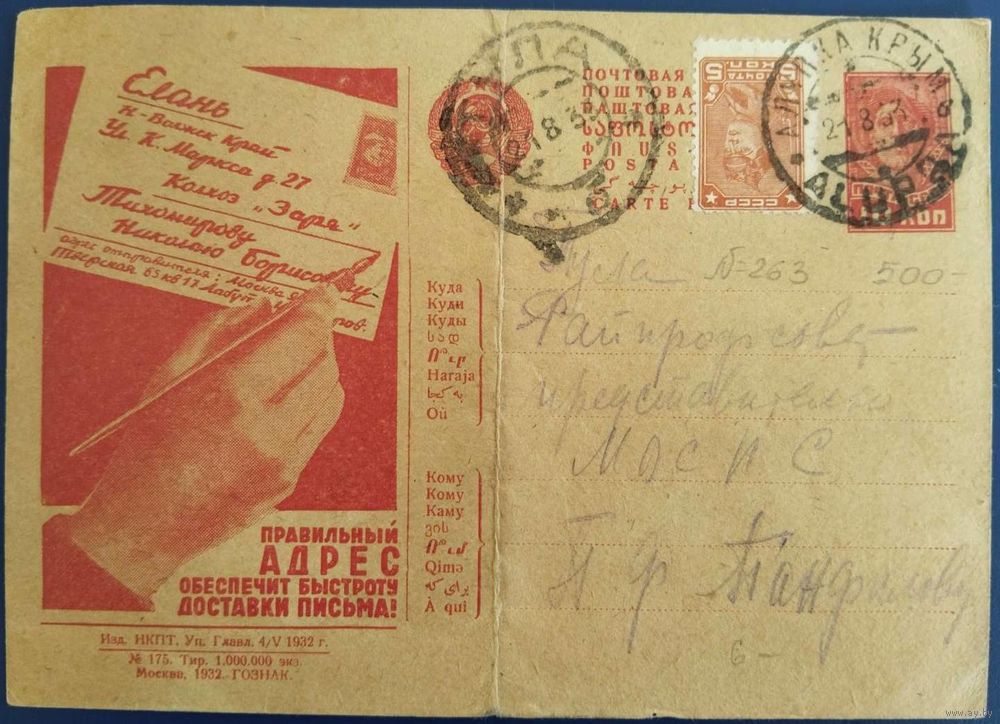 Елань
Н-Волжск край
Ул К. Маркса д. 27
Колхоз „Заря“
Тихомирову
Николаю Борисовичу
адрес отправителя: Москва
Тверская 65 кв 17
ПРАВИЛЬНЫЙ
АДРЕС
ОБЕСПЕЧИТ БЫСТРОТУ
ДОСТАВКИ ПИСЬМА!
Изд. НКПТ. Уп. Главл. 4/V 1932 г.
№ 175. Тир. 1.000.000 экз.
Москва, 1932. ГОЗНАК.
ПОЧТОВАЯ
ПОШТОВА
ПАШТОВА
POSTA
CARTE
ПОЧТА
5 КОП.
СССР
КРЫМ
Куда
Куди
Куды
სად
Haraja
Où
Кому
Кому
Каму
ვის
Qimə
À qui
Тула №263 500-
Райпрофсовет
представителю
МОСПС
П Ф Панфилову
6-
www.ay.by